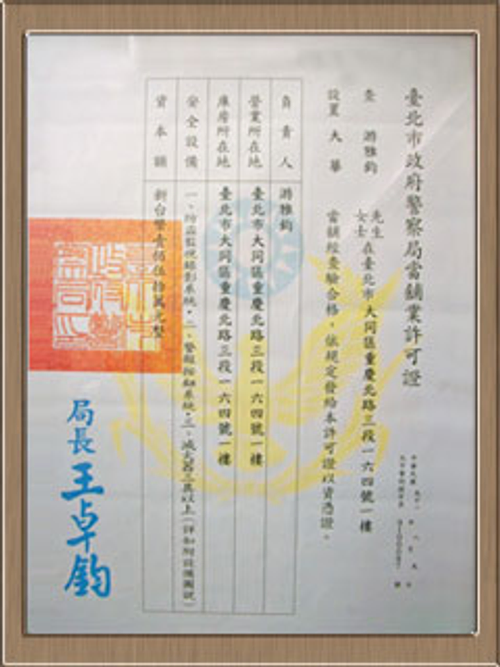 臺北市政府警察局當舖業許可證
查 游雅鈞 先生
女士 在臺北市大同區重慶北路三段一六四號一樓
設置 大華 當舖經查驗合格,依規定發給本許可證以資憑證。
負責人 游雅鈞
營業所在地 臺北市大同區重慶北路三段一六四號一樓
庫房所在地 臺北市大同區重慶北路三段一六四號一樓
安全設備 一、防盜監視錄影系統。二、警報控制系統。三、滅火器三具以上(詳如附設備圖說)
資本額 新台幣壹佰伍拾萬元整
局長 王卓鈞